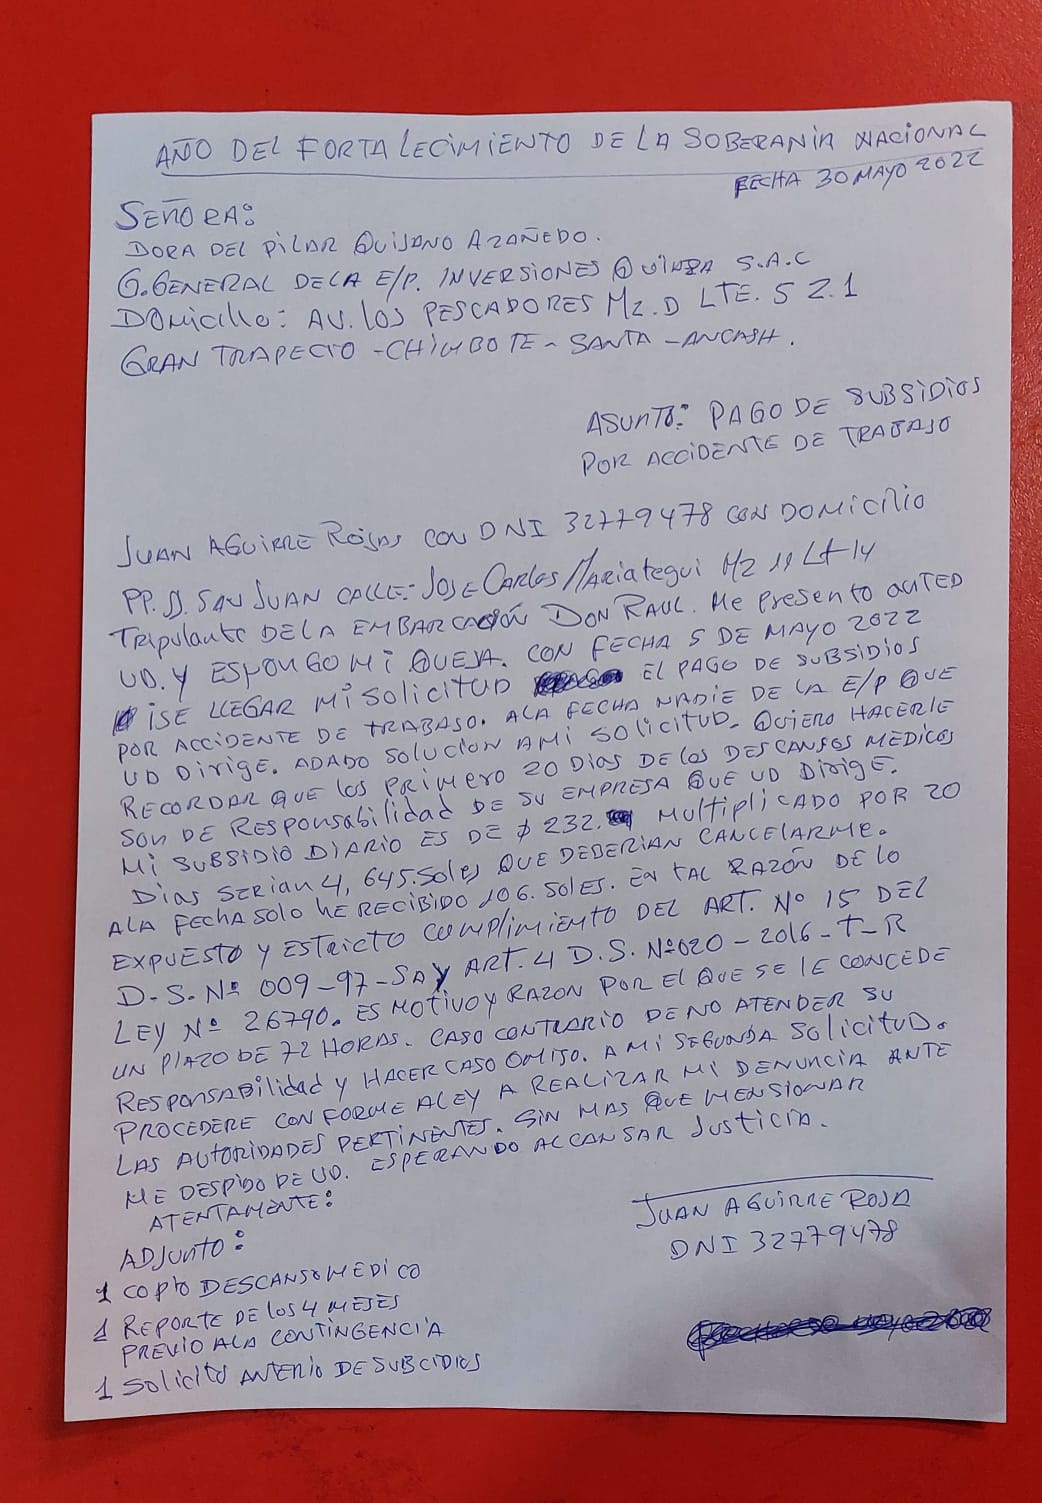 AÑO DEL FORTALECIMIENTO DE LA SOBERANIA NACIONAL
FECHA 30 MAYO 2022
SEÑORA:
DORA DEL PILAR QUIJANO AZAÑEDO.
G.GENERAL DE LA E/P. INVERSIONES S.A.C
DOMICILIO: AV. LOS PESCADORES MZ. D LTE. 5 Z.1
GRAN TRAPECIO - CHIMBOTE - SANTA - ANCASH.
ASUNTO: PAGO DE SUBSIDIOS
POR ACCIDENTE DE TRABAJO
JUAN AGUIRRE ROJAS CON DNI 32779478 CON DOMICILIO
PP.JJ. SAN JUAN CALLE: JOSE CARLOS MARIATEGUI MZ 11 LT 14
TRIPULANTE DE LA EMBARCACIÓN DON RAUL. ME PRESENTO ANTED
UD. Y ESPONGO MI QUEJA. CON FECHA 5 DE MAYO 2022
ISE LLEGAR MI SOLICITUD EL PAGO DE SUBSIDIOS
POR ACCIDENTE DE TRABAJO. ALA FECHA NADIE DE LA E/P QUE
UD DIRIGE. ADADO SOLUCION AMI SOLICITUD. QUIERO HACERLE
RECORDAR QUE LOS PRIMERO 20 DIAS DE LOS DESCANSOS MEDICOS
SON DE RESPONSABILIDAD DE SU EMPRESA QUE UD DIRIGE.
MI SUBSIDIO DIARIO ES DE $ 232. MULTIPLICADO POR 20
DIAS SERIAN 4,645.SOLES QUE DEBERIAN CANCELARME.
ALA FECHA SOLO HE RECIBIDO 106. SOLES. EN TAL RAZÓN DE LO
EXPUESTO Y ESTRICTO CUMPLIMIENTO DEL ART. Nº 15 DEL
D-S-Nº 009-97-SA Y ART. 4 D.S. Nº020-2016-T-R
LEY Nº 26790. ES MOTIVO Y RAZON POR EL QUE SE LE CONCEDE
UN PLAZO DE 72 HORAS. CASO CONTRARIO DE NO ATENDER SU
RESPONSABILIDAD Y HACER CASO OMISO. A MI SEGUNDA SOLICITUD.
PROCEDERE CONFORME ALEY A REALIZAR MI DENUNCIA ANTE
LAS AUTORIDADES PERTINENTES. SIN MAS QUE MENSIONAR
ME DESPIDO DE UD. ESPERANDO ALCANSAR JUSTICIA.
ATENTAMENTE:
JUAN AGUIRRE ROJA
DNI 32779478
ADJUNTO:
1 COPIA DESCANSO MEDICO
1 REPORTE DE LOS 4 MESES
PREVIO ALA CONTINGENCIA
1 SOLICITU ANTERIO DE SUBCIDIOS